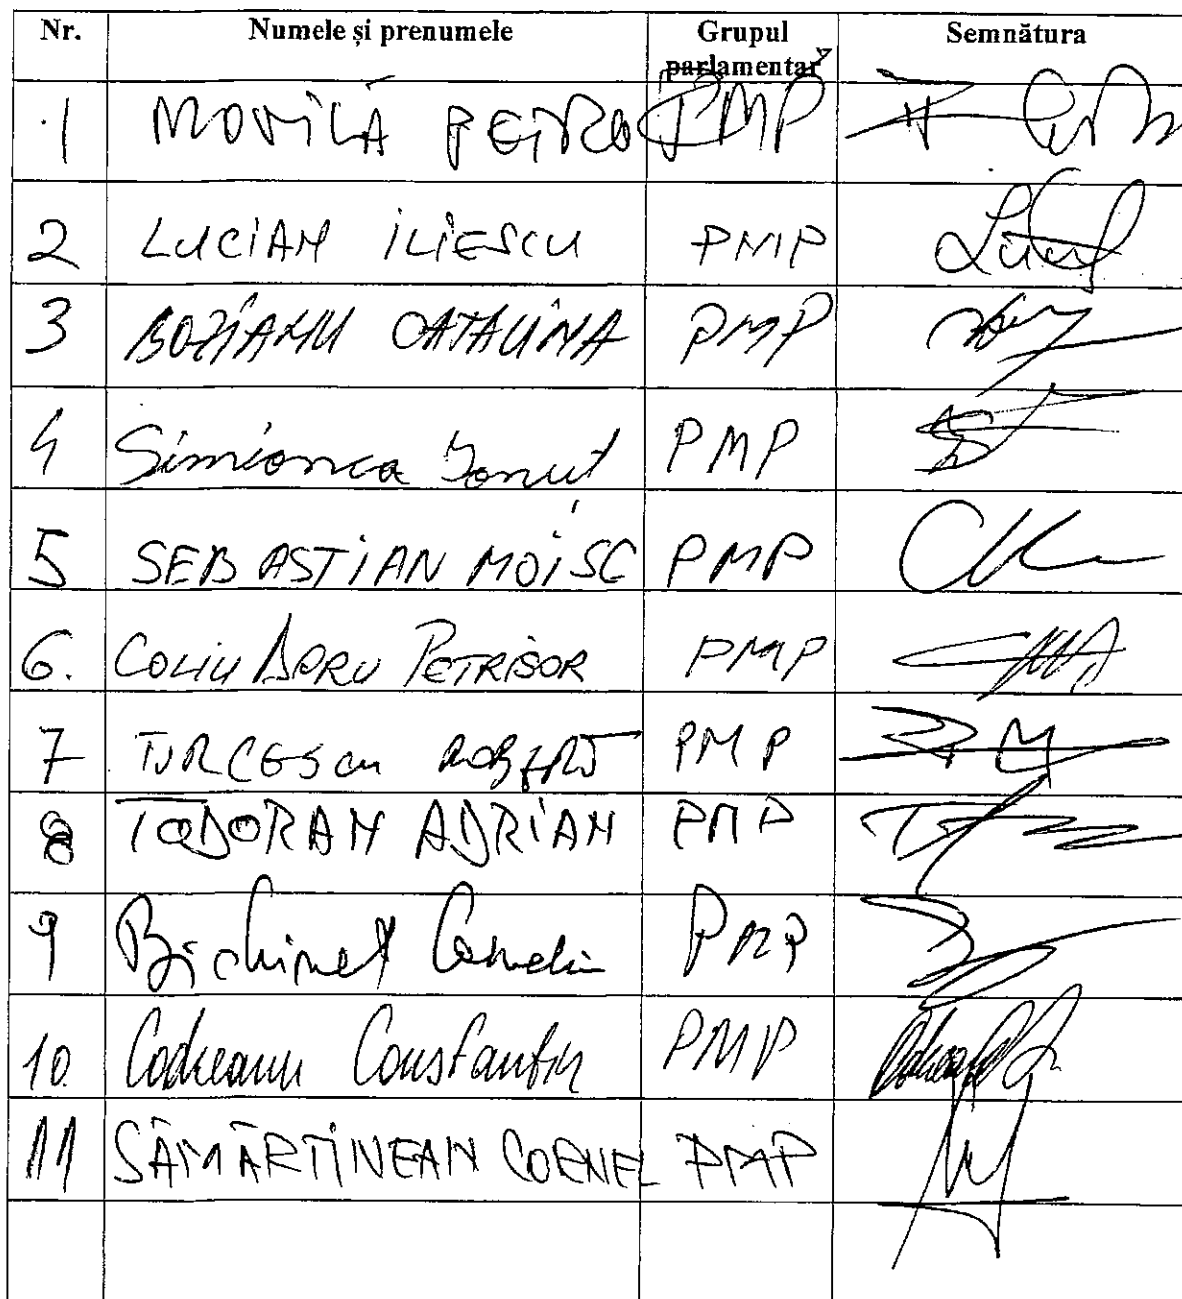 Nr. Numele și prenumele Grupul parlamentar Semnătura
1 MOVILĂ PETRU PMP
2 LUCIAN ILIESCU PMP
3 BOZIANU CATALINA PMP
4 Simionca Ionut PMP
5 SEBASTIAN MOISC PMP
6. COLIU DORU PETRISOR PMP
7 TURCESCU ROBERT PMP
8 TODORAN ADRIAN PMP
9 Bichinet Corneliu PMP
10 Codreanu Constantin PMP
11 SĂMĂRTINEAN CORNEL PMP